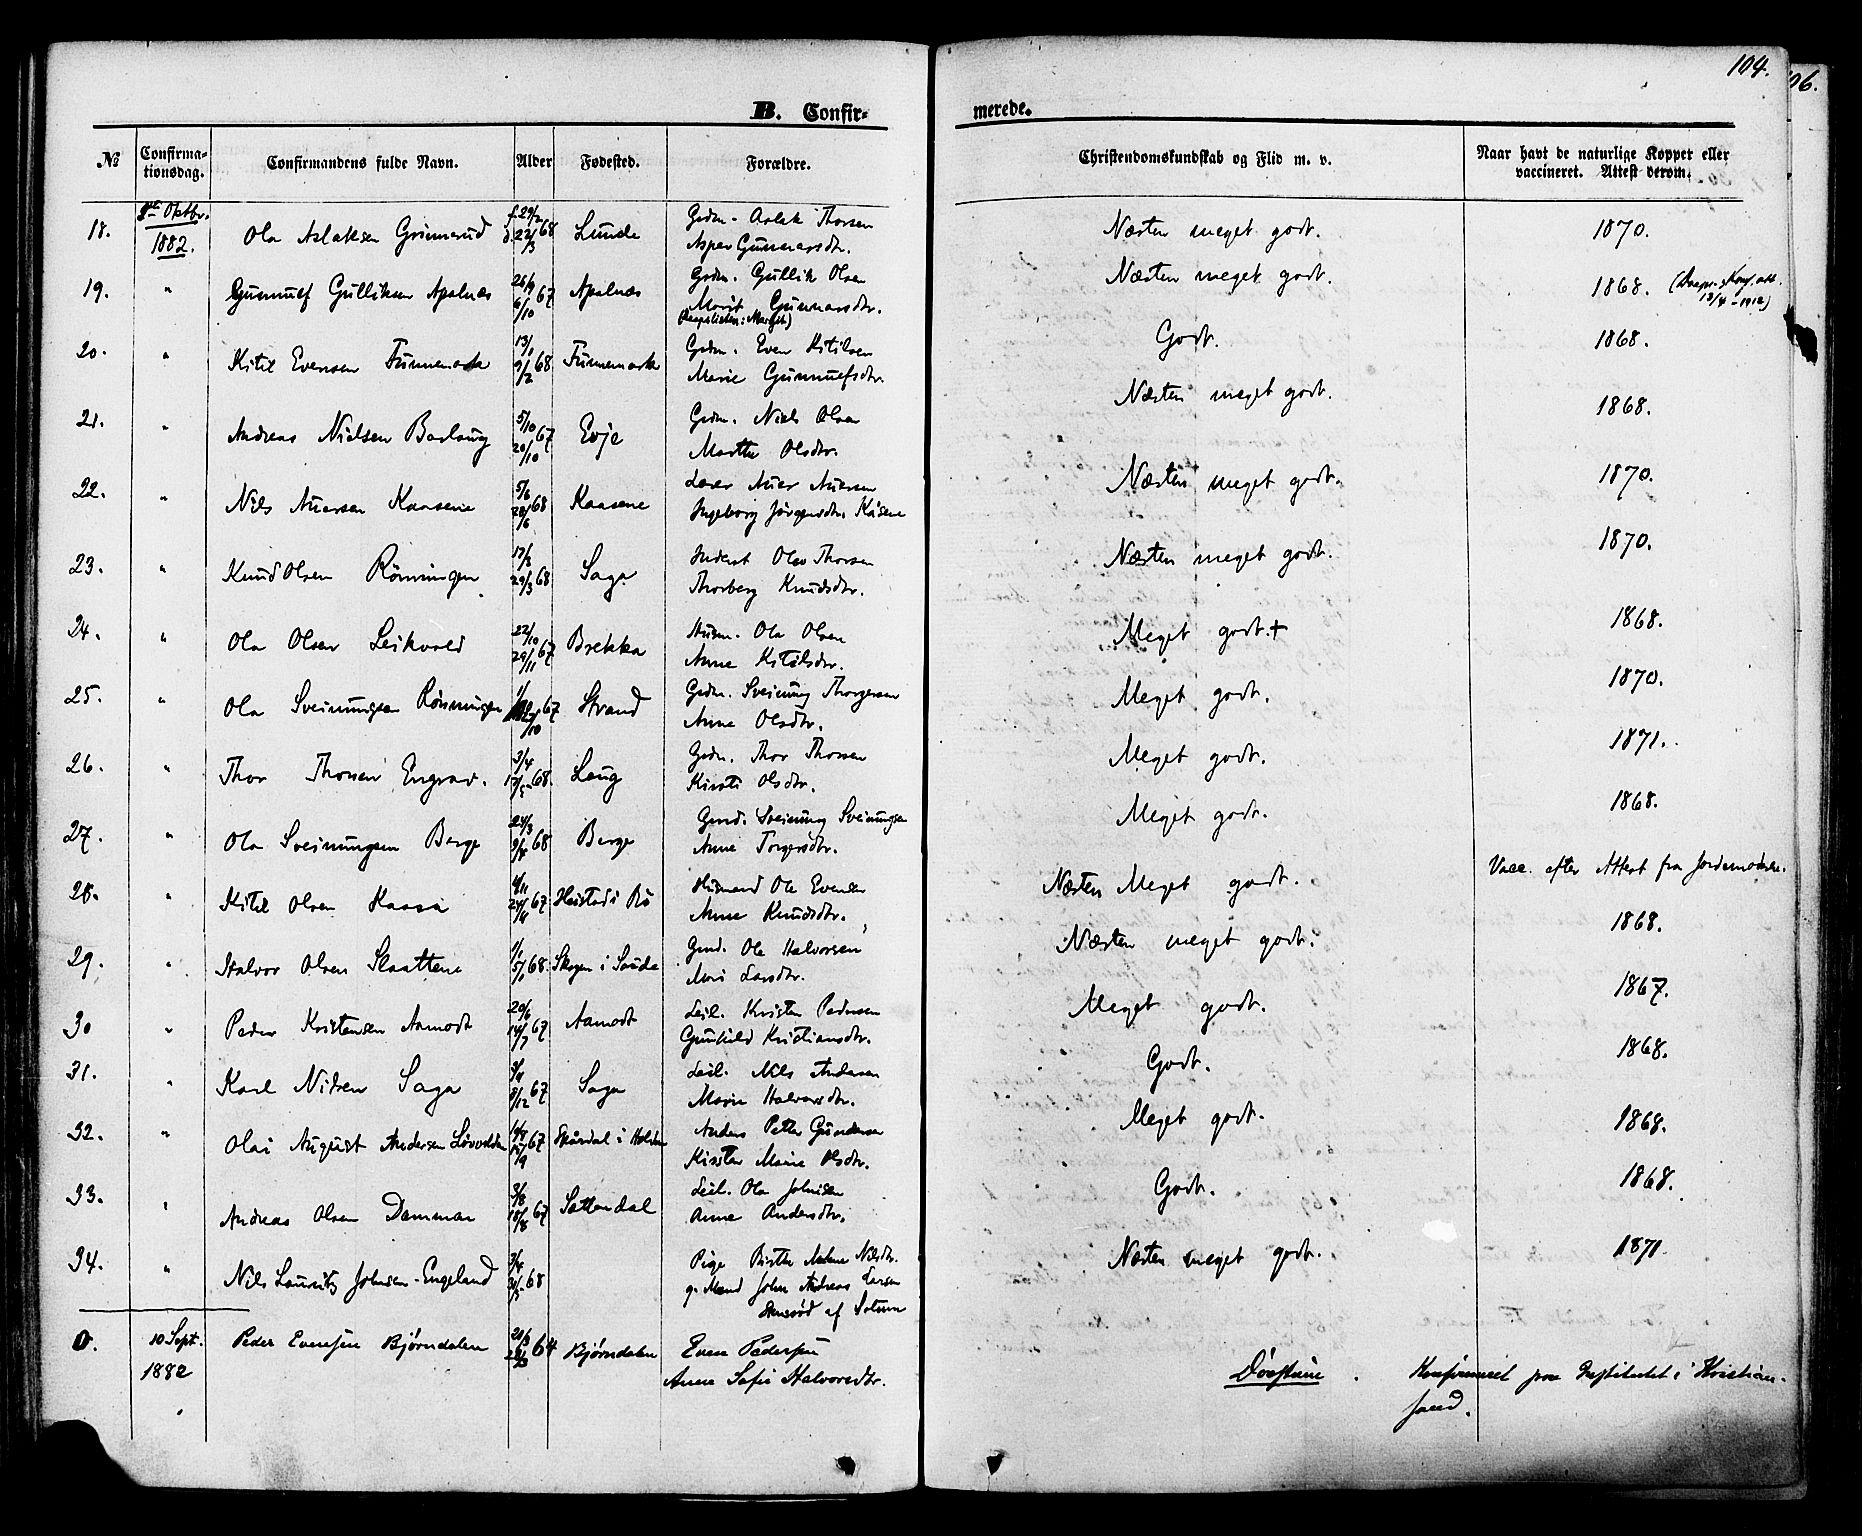 104.
106.
B. Confir-
merede.
No
Confirma-
tionsdag.
Confirmandens fulde Navn.
Alder
Fødested.
Forældre.
Christendomskundskab og Flid m. v.
Naar havt de naturlige Kopper eller
vaccineret. Attest derom.
18. Oktbr. 1882. Ola Aslaksen Grimerud f. 29/2 d. 22/3 68 Lunde Grdm. Aslak Thorsen
Gunnarsdtr. Næsten meget godt. 1870.
19. " Gunnulf Gulliksen Apalnæs 26/9 6/10 67 Apalnæs Grdm. Gullik Olsen
Marit Gunnarsdtr. Næsten meget godt. 1868.
20. " Kitil Evensen Funnemark 13/1 9/2 68 Funnemark Grdm. Even Kitilsen
Marie Gunnulfsdtr. Godt. 1868.
21. " Andreas Nielsen 5/10 20/10 67 Evje Grdm. Niels Olsen
Marthe Olsdtr. Næsten meget godt. 1868.
22. " Nils Auersen Kaasene 5/6 28/6 68 Kaasene Auer Auersen
Ingeborg Jørgensdtr. Kåsene Næsten meget godt. 1870.
23. " Knud Olsen Rönningen 17/3 29/3 68 Saga Inderst Olav Thorsen
Thorberg Knudsdtr. Næsten meget godt. 1870.
24. " Ola Olsen Leikvold 22/10 29/11 67 Brekka Husm. Ola Olsen
Anne Kitilsdtr. Meget godt.+ 1868.
25. " Ola Sveinungsen Rönningen 67 Strand Grdm. Sveinung Thorgersen
Anne Olsdtr. Meget godt. 1870.
26. " Thor Thorsen Engrav. 3/4 68. Laug Grdm. Thor Thorsen
Kirsti Olsdtr. Meget godt. 1871.
27. " Ola Sveinungsen Berge 24/3 9/4 68 Berge Grmd. Sveinung Sveinungsen
Anne Torgersdtr. Meget godt. 1868.
28. " Kitil Olsen Kaasa 67 i Bö Husmand Ole Evensen
Anne Knudsdtr. Næsten Meget godt. Vacc. efter Attest fra Jordemoderen.
29. " Halvor Olsen Slaattene 1/1 5/1 68. Skogen i Saude Grmd. Ole Halvorsen
Mari Larsdtr. Næsten meget godt. 1868.
30 " Peder Kristensen Aamodt 20/6 14/7 67 Aamodt Leil. Kristen Pedersen
Gunhild Kristiansdtr. Meget godt. 1867.
31. " Karl Nilsen Saga 8/12 67 Saga Leil. Nils Andersen
Maren Halvorsdtr. Godt. 1868.
32. " Olai August Andersen 67 i Holden Anders Petter Gundersen
Marie Olsdtr. Meget godt. 1868.
33. " Andreas Olsen Dammen 3/8 18/8 67 Sattendal Leil. Ola Johnsen
Anne Andersdtr. Godt. 1868.
34. " Nils Lauritz Johnsen Engeland 3/4 31/5 68 Pige Malene Nilsdtr.
g. Mand John Andreas Larsen
af Solum Næsten meget godt. 1871.
0. 10 Sept. 1882 Peder Evensen Bjørndalen 64 Bjørndalen Even Pedersen
Anne Sofie Halvorsdtr. Døvstum. Konfirmeret fra Institutet i Kristian-
sand.